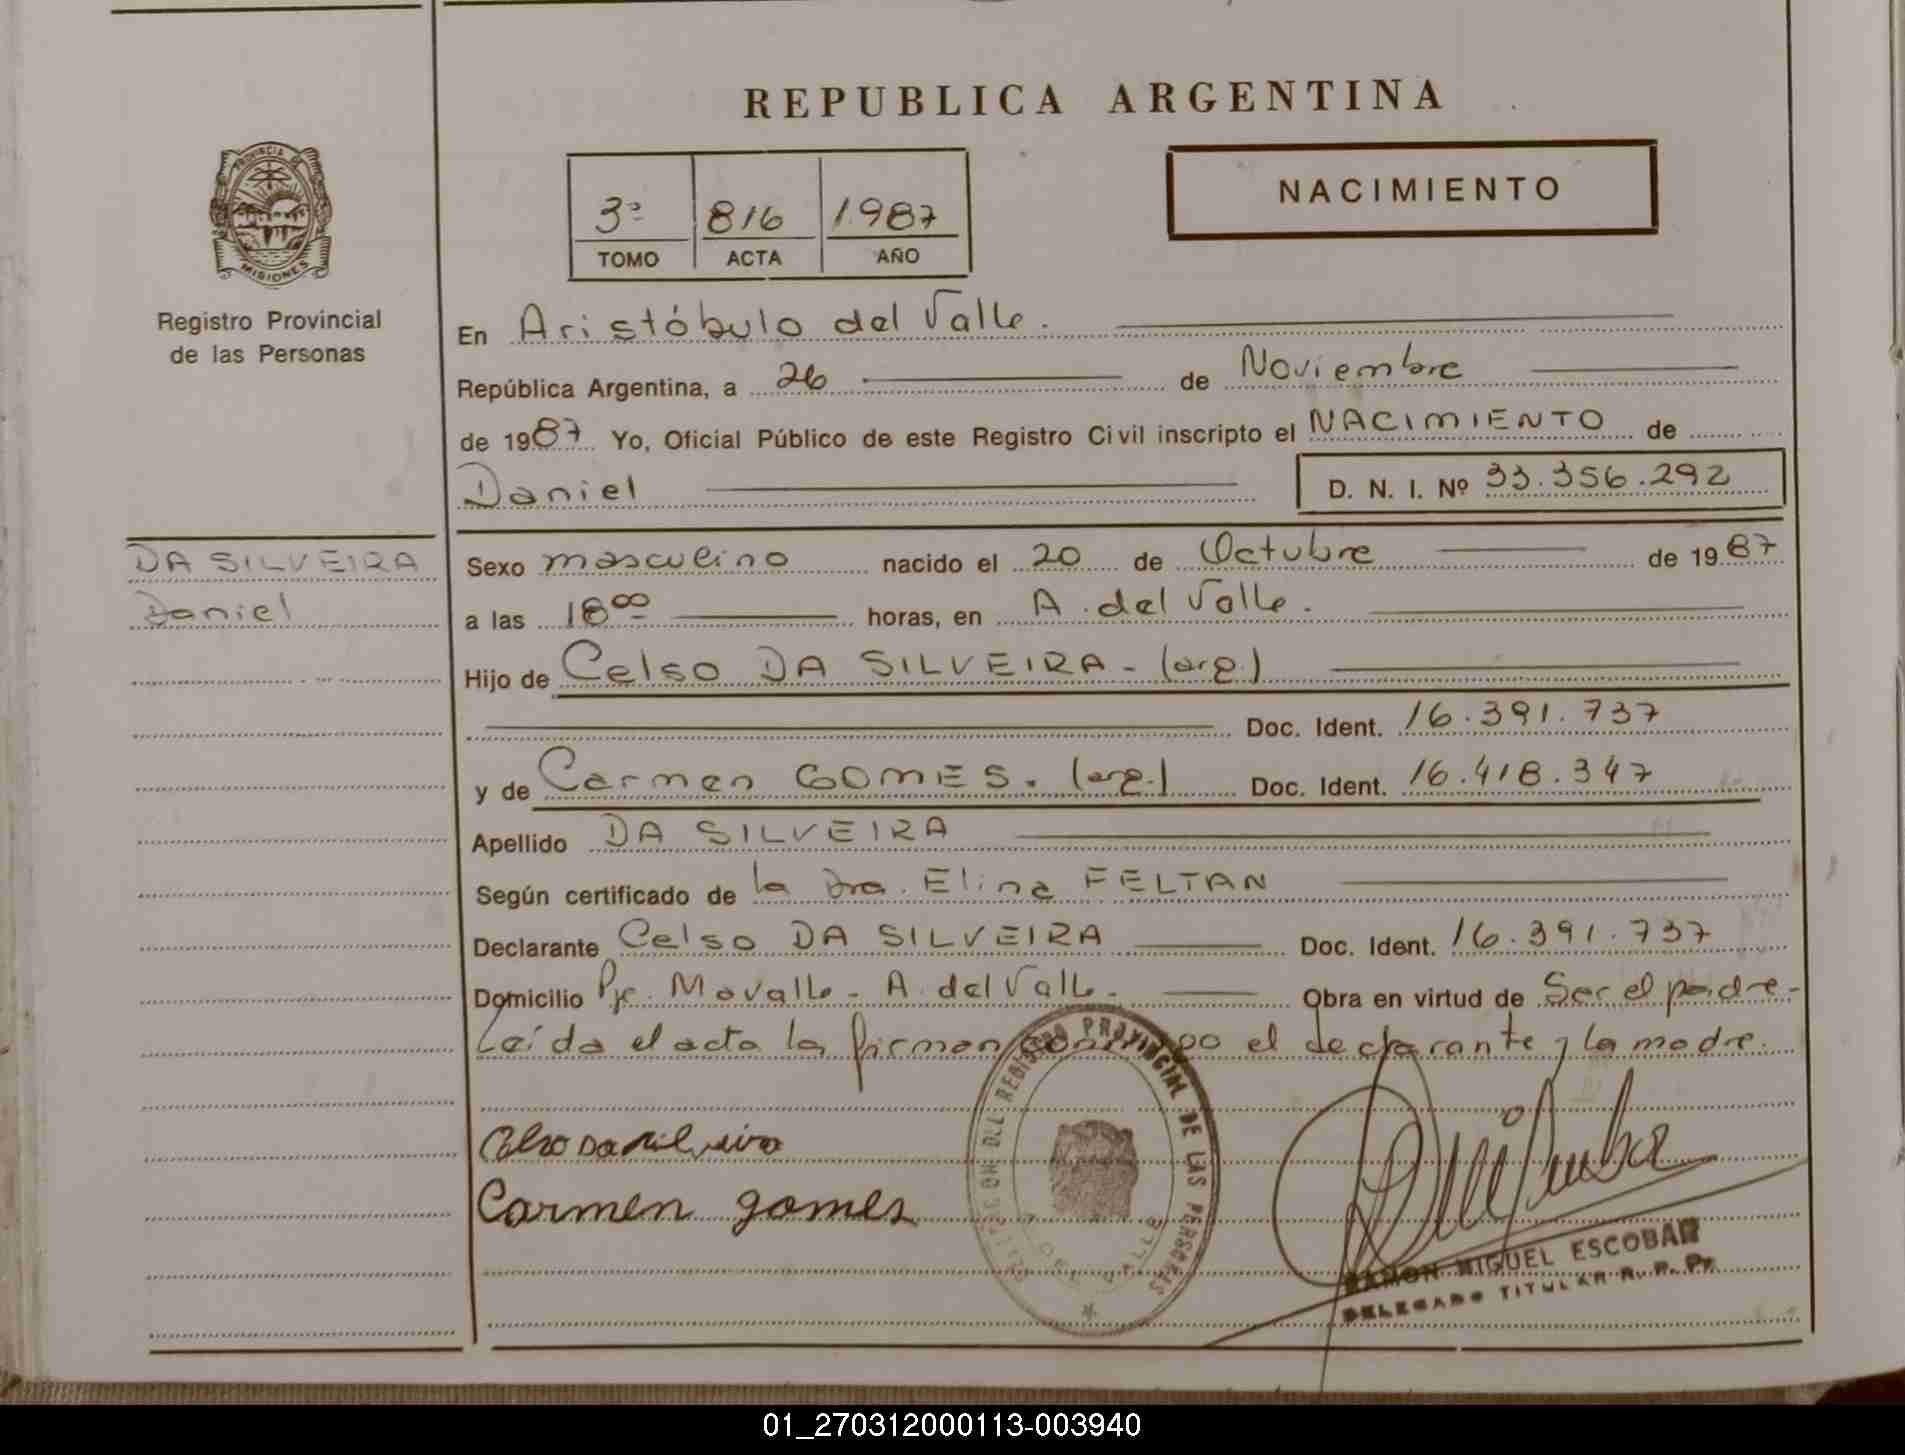 REPUBLICA ARGENTINA
PROVINCIA DE
MISIONES
Registro Provincial
de las Personas
3º 816 1987
TOMO ACTA AÑO
NACIMIENTO
En Aristóbulo del Valle.
República Argentina, a 26 de Noviembre
de 1987 Yo, Oficial Público de este Registro Civil inscripto el NACIMIENTO de
Daniel D. N. I. Nº 33.356.292
DA SILVEIRA
Daniel
Sexo masculino nacido el 20 de Octubre de 1987
a las 18⁰⁰ horas, en A. del Valle.
Hijo de Celso DA SILVEIRA - (arg.)
Doc. Ident. 16.391.737
y de Carmen GOMES. (arg.) Doc. Ident. 16.418.347
Apellido DA SILVEIRA
Según certificado de la Dra. Elina FELTAN
Declarante Celso DA SILVEIRA Doc. Ident. 16.391.737
Domicilio Pje. Movalle - A. del Valle. Obra en virtud de Ser el padre-
Leída el acta la firman el declarante y la madre.
Celso Da Silveira
Carmen gomes
DEL REGISTRO PROVINCIAL DE LAS PERSONAS
DEL VALLE
RAMON MIGUEL ESCOBAR
DELEGADO TITULAR R. P. P.
01_270312000113-003940